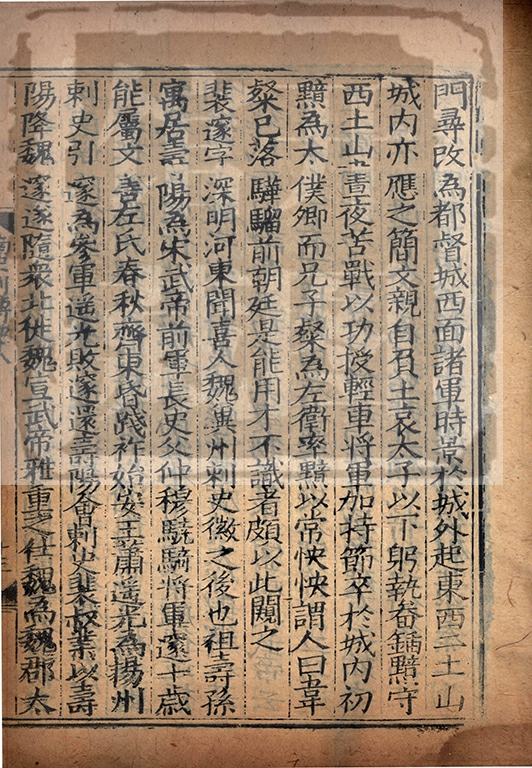 門尋改為都督城西面諸軍時景於城外起東西二土山
城内亦應之簡文親自負土哀太子以下躬執畚鍤黯守
西土山晝夜苦戰以功授輕車將軍加持節卒於城内初
黯為太僕卿而兄子粲為左衛率黯以常怏怏謂人曰韋
粲已落驊騮前朝廷是能用才不識者頗以此闚之
裴邃字深明河東聞喜人魏冀州刺史徽之後也祖壽孫
寓居壽陽為宋武帝前軍長史父仲穆驍騎將軍邃十歲
能屬文善左氏春秋齊東昏踐祚始安王蕭遙光為揚州
刺史引邃為參軍遙光敗邃還壽陽會刺史裴叔業以壽
陽降魏邃遂隨衆北徙魏宣武帝雅重之仕魏為魏郡太